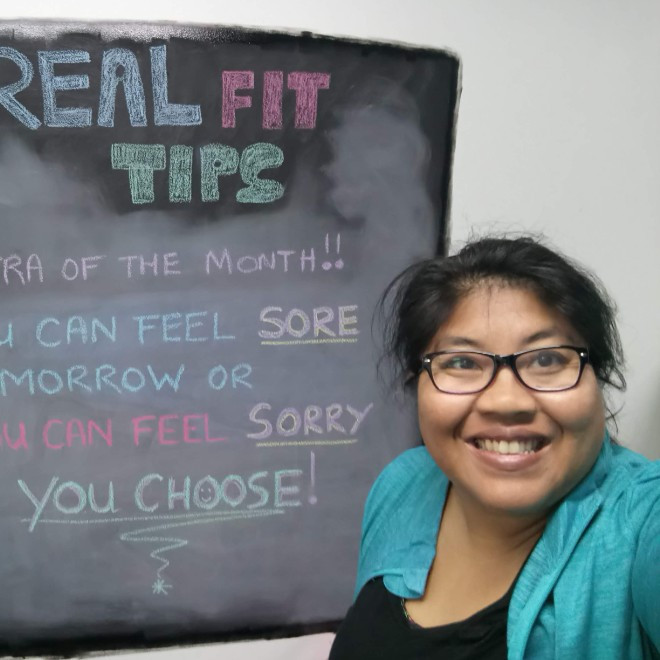 REAL FIT
TIPS
TRA OF THE MONTH!!
U CAN FEEL SORE
MORROW OR
OU CAN FEEL SORRY
YOU CHOOSE!